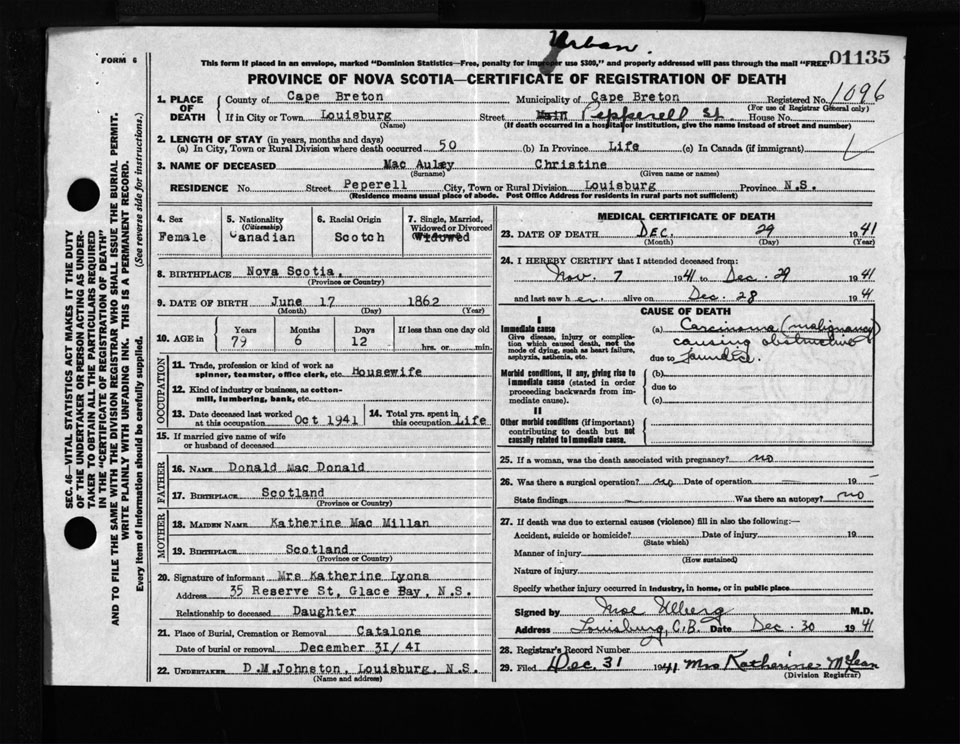 Urban.
FORM 6
This form if placed in an envelope, marked "Dominion Statistics—Free, penalty for improper use $300," and properly addressed will pass through the mail "FREE"
01135
PROVINCE OF NOVA SCOTIA—CERTIFICATE OF REGISTRATION OF DEATH
1. PLACE OF DEATH
County of Cape Breton Municipality of Cape Breton Registered No. 1096
(For use of Registrar General only)
If in City or Town Louisburg Street Main Pepperell St. House No.
(Name) (If death occurred in a hospital or institution, give the name instead of street and number)
2. LENGTH OF STAY (in years, months and days)
(a) In City, Town or Rural Division where death occurred 50 (b) In Province Life (c) In Canada (if immigrant)
3. NAME OF DECEASED Mac Auley Christine
(Surname) (Given name or names)
RESIDENCE No. Street Peperell City, Town or Rural Division Louisburg Province N.S.
(Residence means usual place of abode. Post Office Address for residents in rural parts not sufficient)
4. Sex
Female
5. Nationality
(Citizenship)
Canadian
6. Racial Origin
Scotch
7. Single, Married,
Widowed or Divorced
Widowed
8. BIRTHPLACE Nova Scotia.
(Province or Country)
9. DATE OF BIRTH June 17 1862
(Month) (Day) (Year)
10. AGE in
Years Months Days If less than one day old
79 6 12 hrs. or min.
OCCUPATION
11. Trade, profession or kind of work as
spinner, teamster, office clerk, etc. Housewife
12. Kind of industry or business, as cotton-
mill, lumbering, bank, etc.
13. Date deceased last worked
at this occupation Oct 1941
14. Total yrs. spent in
this occupation Life
15. If married give name of wife
or husband of deceased
FATHER
16. NAME Donald Mac Donald
17. BIRTHPLACE Scotland
(Province or Country)
MOTHER
18. MAIDEN NAME Katherine Mac Millan
19. BIRTHPLACE Scotland
(Province or Country)
20. Signature of informant Mrs Katherine Lyons
Address 35 Reserve St, Glace Bay, N.S.
Relationship to deceased Daughter
21. Place of Burial, Cremation or Removal Catalone
Date of burial or removal December 31/41
22. UNDERTAKER D.M.Johnston, Louisburg, N.S.
(Name and address)
MEDICAL CERTIFICATE OF DEATH
23. DATE OF DEATH DEC. 29 1941
(Month) (Day) (Year)
24. I HEREBY CERTIFY that I attended deceased from:
Nov. 7 1941 to Dec. 29 1941
and last saw her alive on Dec. 28 1941
CAUSE OF DEATH
I
Immediate cause
Give disease, injury or complica-
tion which caused death, not the
mode of dying, such as heart failure,
asphyxia, asthenia, etc.
(a) Carcinoma (malignancy)
causing obstructive
due to Jaundice.
Morbid conditions, if any, giving rise to
immediate cause (stated in order
proceeding backwards from im-
mediate cause).
(b)
due to
(c)
II
Other morbid conditions (if important)
contributing to death but not
causally related to immediate cause.
25. If a woman, was the death associated with pregnancy? no
26. Was there a surgical operation? no Date of operation — 19 —
State findings — Was there an autopsy? no
27. If death was due to external causes (violence) fill in also the following:—
Accident, suicide or homicide? Date of injury 19
(State which)
Manner of injury
(How sustained)
Nature of injury
Specify whether injury occurred in industry, in home, or in public place
Signed by M.D.
Address Louisburg, C.B. Date Dec. 30 1941
28. Registrar's Record Number
29. Filed Dec. 31 1941 Mrs Katherine McLean
(Division Registrar)
SEC. 46—VITAL STATISTICS ACT MAKES IT THE DUTY
OF THE UNDERTAKER OR PERSON ACTING AS UNDER-
TAKER TO OBTAIN ALL THE PARTICULARS REQUIRED
IN THE "CERTIFICATE OF REGISTRATION OF DEATH"
AND TO FILE THE SAME WITH THE DIVISION REGISTRAR WHO SHALL ISSUE THE BURIAL PERMIT.
WRITE PLAINLY WITH UNFADING INK. THIS IS A PERMANENT RECORD.
Every item of information should be carefully supplied. (See reverse side for instructions.)